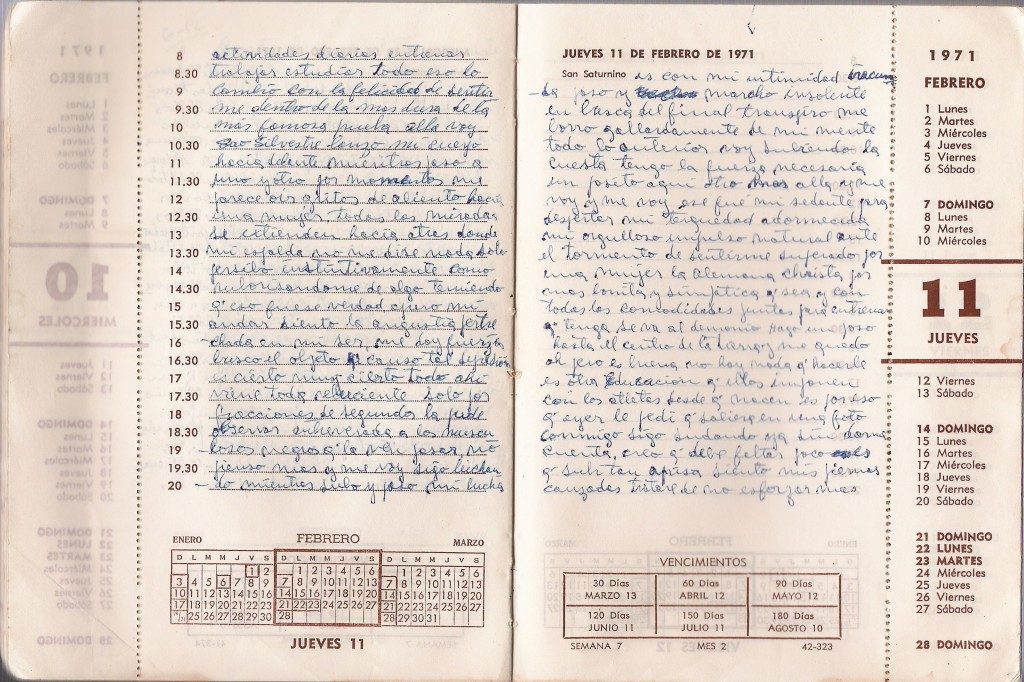 8 actividades diarias entrenar
8.30 trabajar estudiar todo eso lo
9 cambio con la felicidad de sentir
9.30 me dentro de la mas dura de la
10 mas famosa prueba alla voy
10.30 Silvestre lanzo mi cuerpo
11 hacia adelante mientras paso a
11.30 uno y otro por momentos me
12 parece oir gritos de aliento hacia
12.30 una mujer todas las miradas
13 se extienden hacia atras donde
13.30 mi espalda no me dise nada solo
14 persibo instintivamente como
14.30 ruborisandome de algo temiendo
15 q' eso fuese verdad apuro mi
15.30 andar siento la angustia pertre
16 chada en mi ser, me doy fuerza,
16.30 busco el objeto q' causo tal depresión
17 es cierto muy cierto todo ahi
17.30 viene toda reluciente solo por
18 fracciones de segundos la pude
18.30 observar entreverada a los muscu
19 losos negros q' la ven pasar, no
19.30 pienso mas y me voy sigo luchan
20 do mientras subo y paso mi lucha
ENERO FEBRERO MARZO
D L M M J V S D L M M J V S D L M M J V S
1 2 1 2 3 4 5 6 1 2 3 4 5 6
3 4 5 6 7 8 9 7 8 9 10 11 12 13 7 8 9 10 11 12 13
10 11 12 13 14 15 16 14 15 16 17 18 19 20 14 15 16 17 18 19 20
17 18 19 20 21 22 23 21 22 23 24 25 26 27 21 22 23 24 25 26 27
24/31 25 26 27 28 29 30 28 28 29 30 31
JUEVES 11
JUEVES 11 DE FEBRERO DE 1971
San Saturnino es con mi intimidad
la paso y marcho insolente
en busca del final transpiro me
corro gallardamente de mi mente
todo lo anterior voy subiendo la
cuesta tengo la fuerza necesaria
un pasito aqui otro mas alla y me
voy y me voy ese fué mi sedante para
despertar mi terquedad adormecida
mi orgulloso impulso natural ante
el tormento de sentirme superado por
una mujer la Alemana Christa por
mas bonita y simpática q' sea y con
todas las comodidades juntas para entrenar
q' tenga se va al demonio hago un poso
hasta el centro de la tierra y me quedo
oh pero es buena no hay nada q' hacerle
es otra Educacion q' ellos imponen
con los atletas desde q' nacen es por eso
q' ayer le pedi q' saliera en una foto
conmigo sigo sudando ya sin darme
cuenta, creo q' debe faltar poco
q' subi tan aprisa siento mis piernas
canzadas trataré de no esforzar mas
VENCIMIENTOS
30 Días 60 Días 90 Días
MARZO 13 ABRIL 12 MAYO 12
120 Días 150 Días 180 Días
JUNIO 11 JULIO 11 AGOSTO 10
SEMANA 7 MES 2 42-323
1971
FEBRERO
1 Lunes
2 Martes
3 Miércoles
4 Jueves
5 Viernes
6 Sábado
7 DOMINGO
8 Lunes
9 Martes
10 Miércoles
11
JUEVES
12 Viernes
13 Sábado
14 DOMINGO
15 Lunes
16 Martes
17 Miércoles
18 Jueves
19 Viernes
20 Sábado
21 DOMINGO
22 LUNES
23 MARTES
24 Miércoles
25 Jueves
26 Viernes
27 Sábado
28 DOMINGO